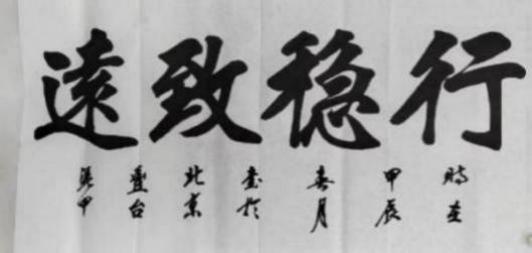 行稳致遠
時在
甲辰
春月
書於
北京
豐台